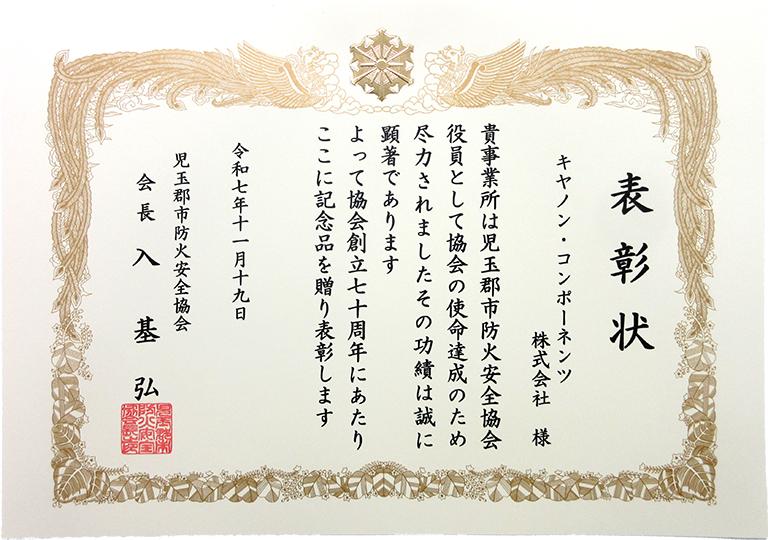 表彰状
キヤノン・コンポーネンツ
株式会社 様
貴事業所は児玉郡市防火安全協会
役員として協会の使命達成のため
尽力されましたその功績は誠に
顕著であります
よって協会創立七十周年にあたり
ここに記念品を贈り表彰します
令和七年十一月十九日
児玉郡市防火安全協会
会長 入 基 弘